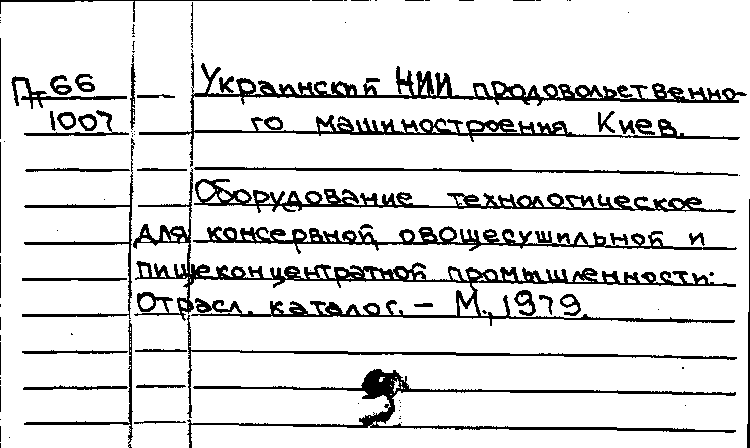 Пт 66
1007
Украинский НИИ продовольственно-
го машиностроения. Киев.
Оборудование технологическое
для консервной, овощесушильной и
пищеконцентратной промышленности:
Отрасл. каталог. – М., 1979.